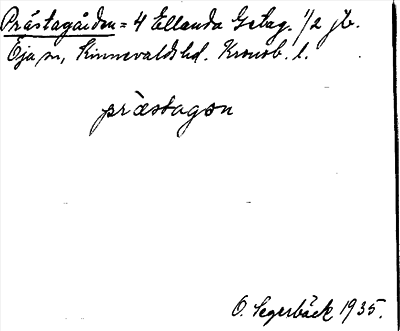 Prästagården = 4 Ellanda Getag. 1/2 jb.
Öja sn, Kinnevalds hd. Kronob. l.
præstagɔn
O. Segerbäck 1935.